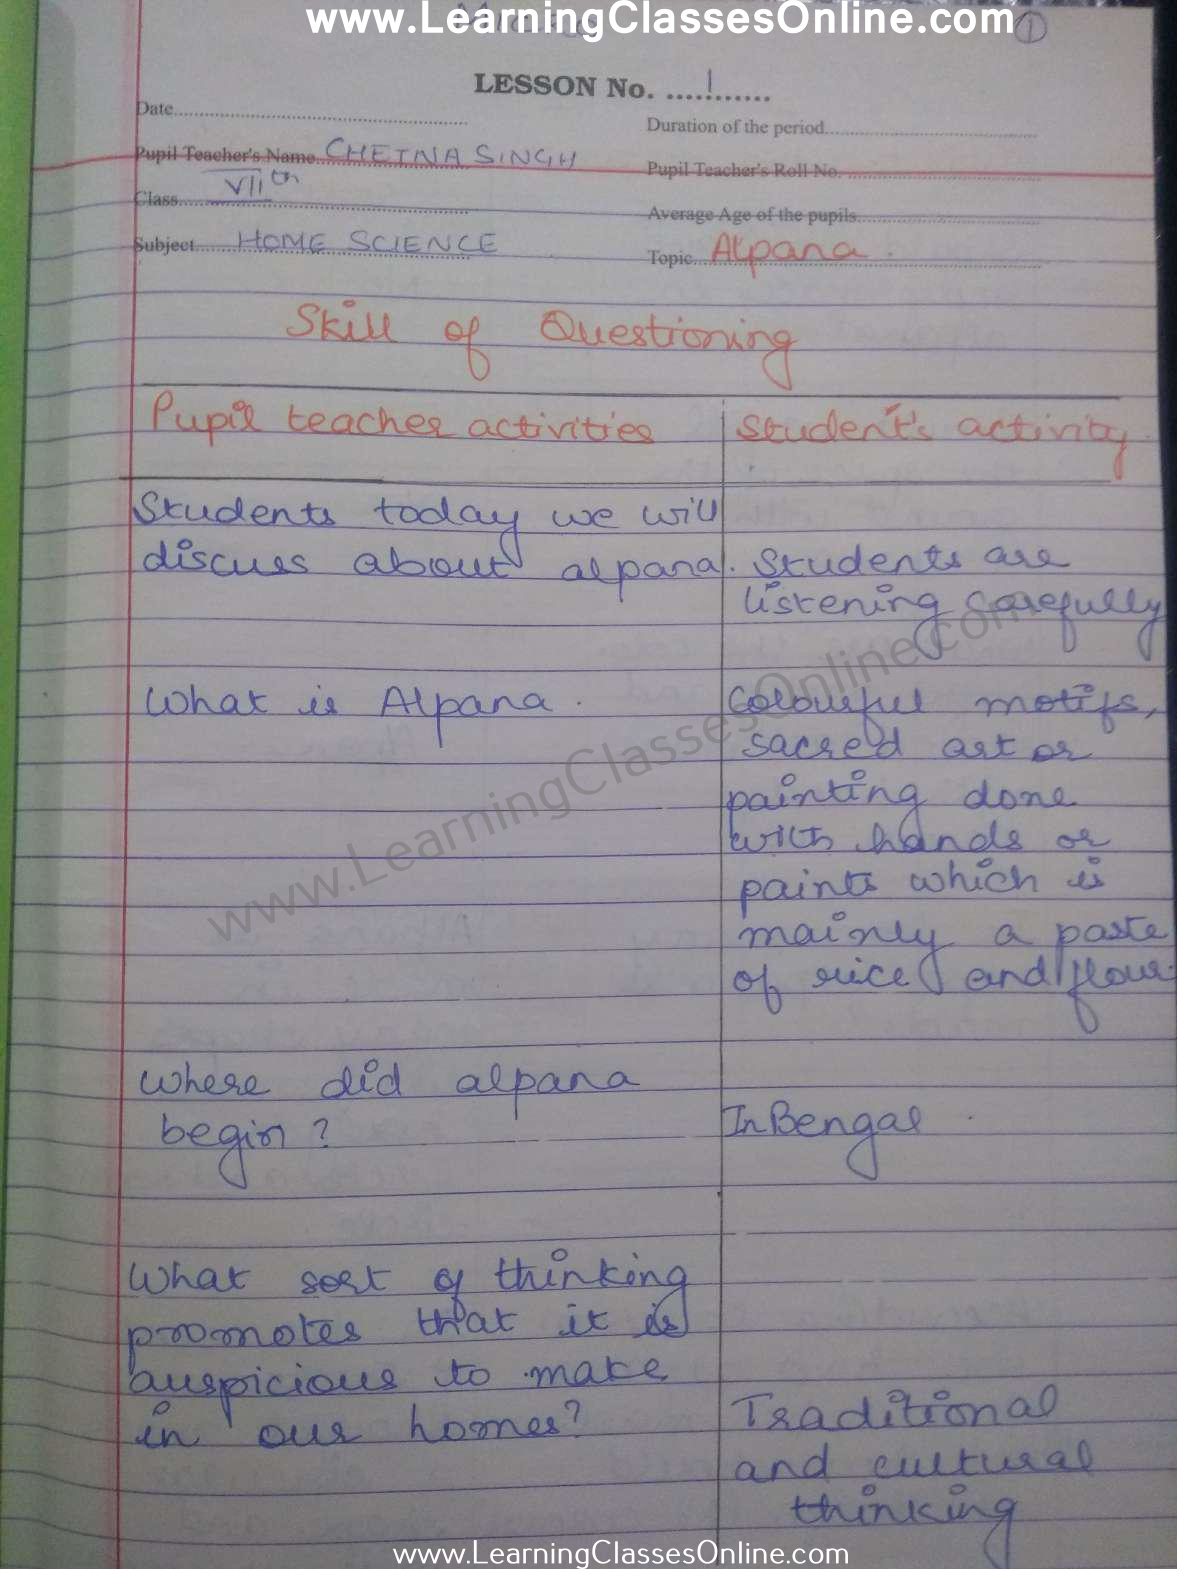 www.LearningClassesOnline.com
1
LESSON No. ....1............
Date............
Duration of the period............
Pupil Teacher's Name CHETNA SINGH
Pupil Teacher's Roll No. ............
Class VIIth
Average Age of the pupils............
Subject HOME SCIENCE
Topic Alpana.
Skill of Questioning
Pupil teacher activities
Student's activity.
Students today we will
discuss about alpana.
Students are
listening carefully
What is Alpana.
Colourful motifs,
sacred art or
painting done
with hands or
paints which is
mainly a paste
of rice and flour.
www.LearningClassesOnline.com
Where did alpana
begin?
In Bengal.
What sort of thinking
promotes that it is
auspicious to make
in our homes?
Traditional
and cultural
thinking
www.LearningClassesOnline.com